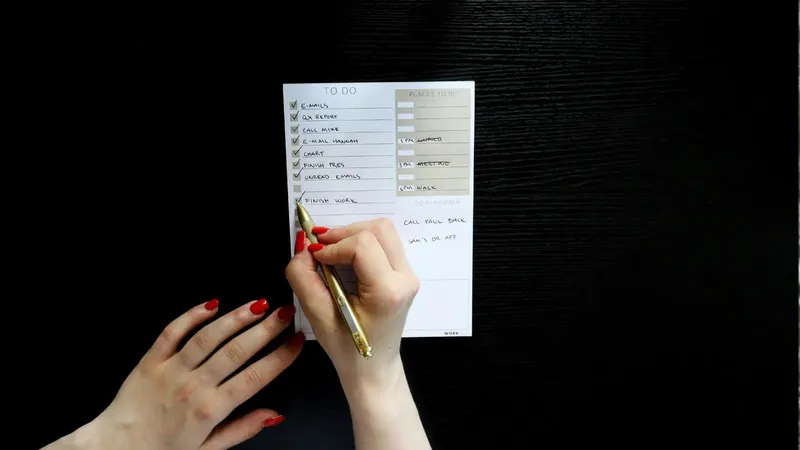 TO DO
E-MAILS
QX REPORT
CALL MIKE
E-MAIL HANNAH
CHART
FINISH PRES
UNREAD EMAILS
FINISH WORK
PLACES TO BE
1 PM
MEETING
6 PM WALK
TO REMEMBER
CALL PAUL BACK
SAM'S DR APP
WORK